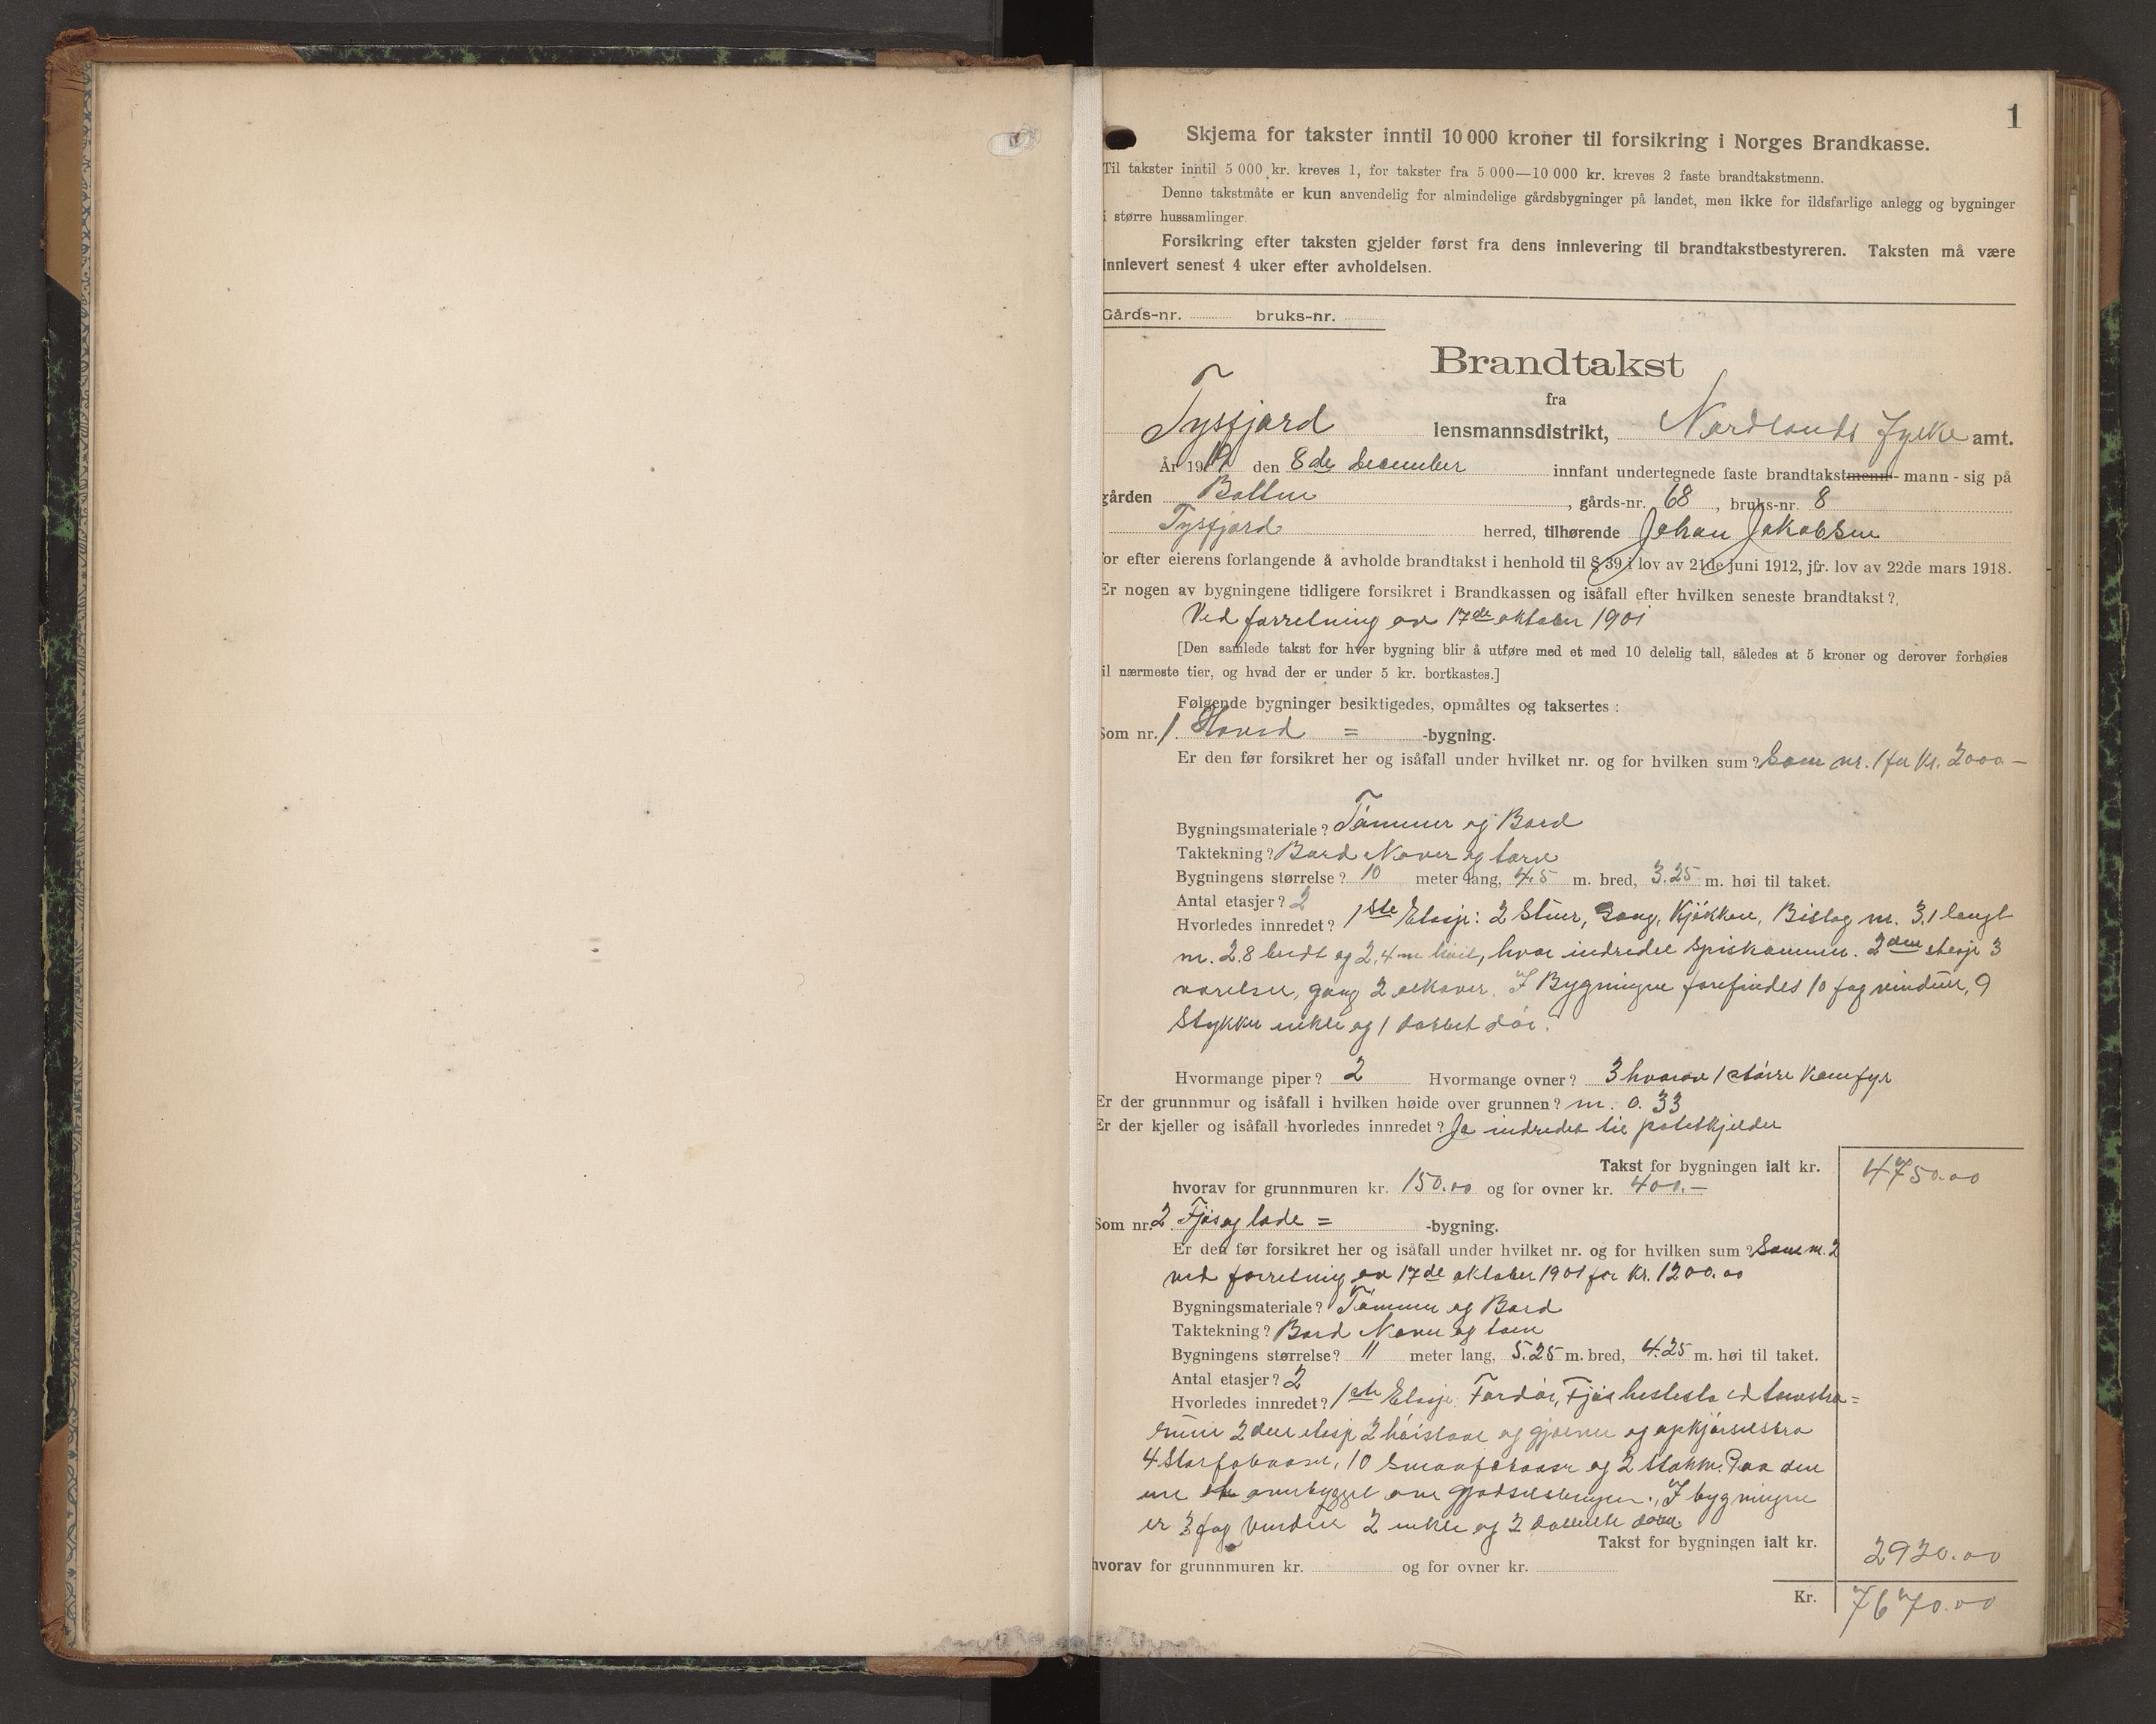 1
Skjema for takster inntil 10 000 kroner til forsikring i Norges Brandkasse.
Til takster inntil 5 000 kr. kreves 1, for takster fra 5 000—10 000 kr. kreves 2 faste brandtakstmenn.
Denne takstmåte er kun anvendelig for almindelige gårdsbygninger på landet, men ikke for ildsfarlige anlegg og bygninger
i større hussamlinger.
Forsikring efter taksten gjelder først fra dens innlevering til brandtakstbestyreren. Taksten må være
innlevert senest 4 uker efter avholdelsen.
Gårds-nr. bruks-nr.
Brandtakst
fra
Tysfjord lensmannsdistrikt, Nordlands fylke amt.
År 1919 den 8de december innfant undertegnede faste brandtakstmenn - mann - sig på
gården Botten, gårds-nr. 68, bruks-nr. 8
Tysfjord herred, tilhørende Johan Jakobsen
for efter eierens forlangende å avholde brandtakst i henhold til § 39 i lov av 21de juni 1912, jfr. lov av 22de mars 1918.
Er nogen av bygningene tidligere forsikret i Brandkassen og isåfall efter hvilken seneste brandtakst?
Ved forretning av 17de oktober 1901
[Den samlede takst for hver bygning blir å utføre med et med 10 delelig tall, således at 5 kroner og derover forhøies
til nærmeste tier, og hvad der er under 5 kr. bortkastes.]
Følgende bygninger besiktigedes, opmåltes og taksertes :
Som nr. 1. Hoved = -bygning.
Er den før forsikret her og isåfall under hvilket nr. og for hvilken sum? Som nr. 1 for Kr. 2000 —
Bygningsmateriale? Tømmer og Bord
Taktekning? Bord Never og torv
Bygningens størrelse? 10 meter lang, 4.5 m. bred, 3.25 m. høi til taket.
Antal etasjer? 2
Hvorledes innredet? 1ste Etasje: 2 Stuer, Gang, Kjøkken, Bislag m. 3,1 langt
m. 2.8 bredt og 2,4 m høit, hvor indredet spiskammer. 2den etasje 3
værelser, gang 2 alkover. I Bygningen forefindes 10 fag vinduer, 9
Stykker enkle og 1 dobbelt dør.
Hvormange piper? 2 Hvormange ovner? 3 hvorav 1 større Komfyr
Er der grunnmur og isåfall i hvilken høide over grunnen? m. 0.33
Er der kjeller og isåfall hvorledes innredet? Ja indredet til potetkjelder
Takst for bygningen ialt kr. 4750.00
hvorav for grunnmuren kr. 150.00 og for ovner kr. 400.—
Som nr. 2 Fjøs og lade = -bygning.
Er den før forsikret her og isåfall under hvilket nr. og for hvilken sum? Som nr. 2
ved forretning av 17de oktober 1901 for Kr. 1200.00
Bygningsmateriale? Tømmer og Bord
Taktekning? Bord Never og torv
Bygningens størrelse? 11 meter lang, 5.25 m. bred, 4.25 m. høi til taket.
Antal etasjer? 2
Hvorledes innredet? 1ste Etasje: Fordør, Fjøs
2den etasje 2 og opkjørselsbro
4 10 og 2
I bygningen
er 3 fag Vinduer 2 enkle og 2 dobbelte døre
Takst for bygningen ialt kr. 2920.00
hvorav for grunnmuren kr. og for ovner kr.
Kr. 7670.00